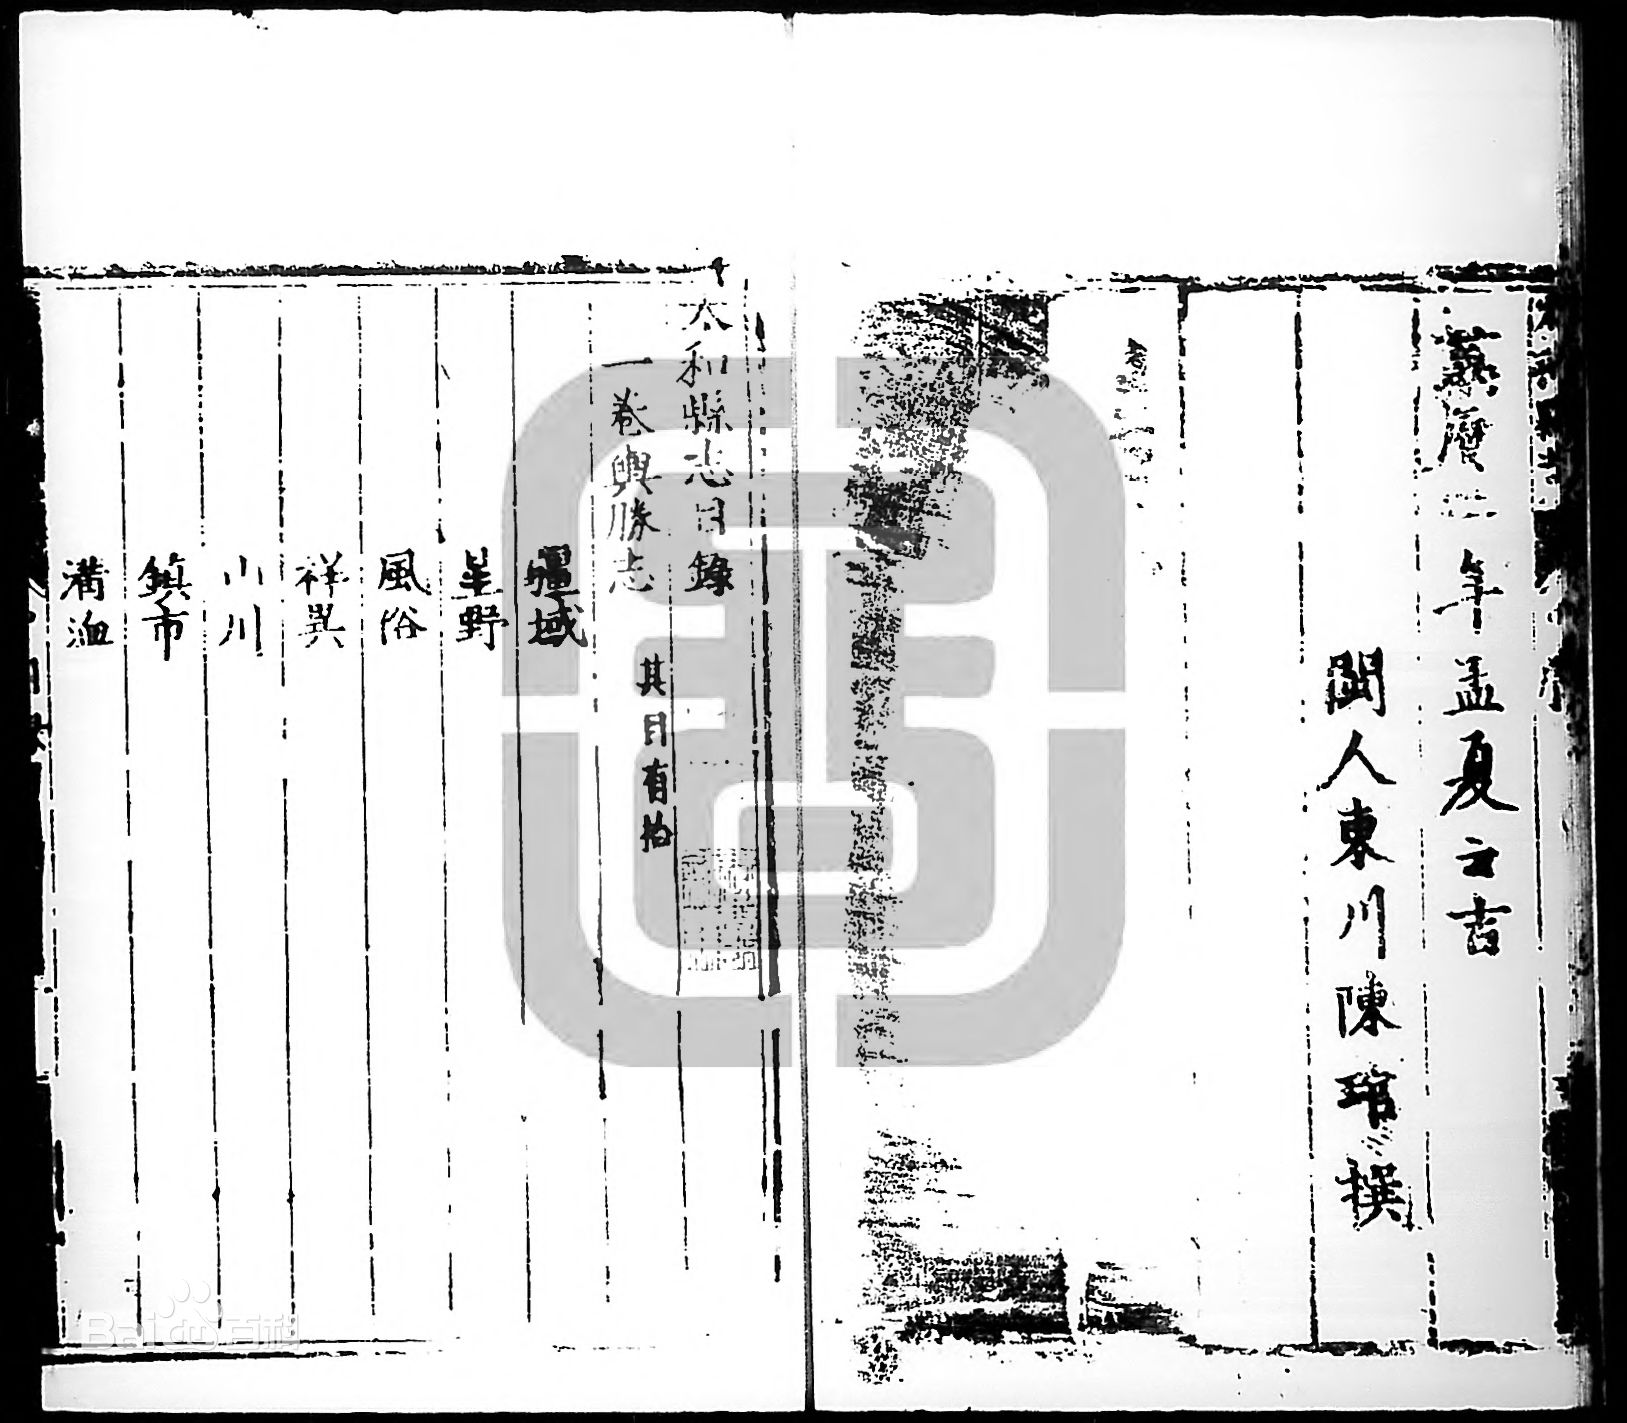 萬曆二年孟夏之吉
閩人東川陳琯撰
太和縣志目錄
一卷輿勝志 其目有拾
疆域
星野
風俗
祥異
山川
鎮市
溝洫
Bai百科